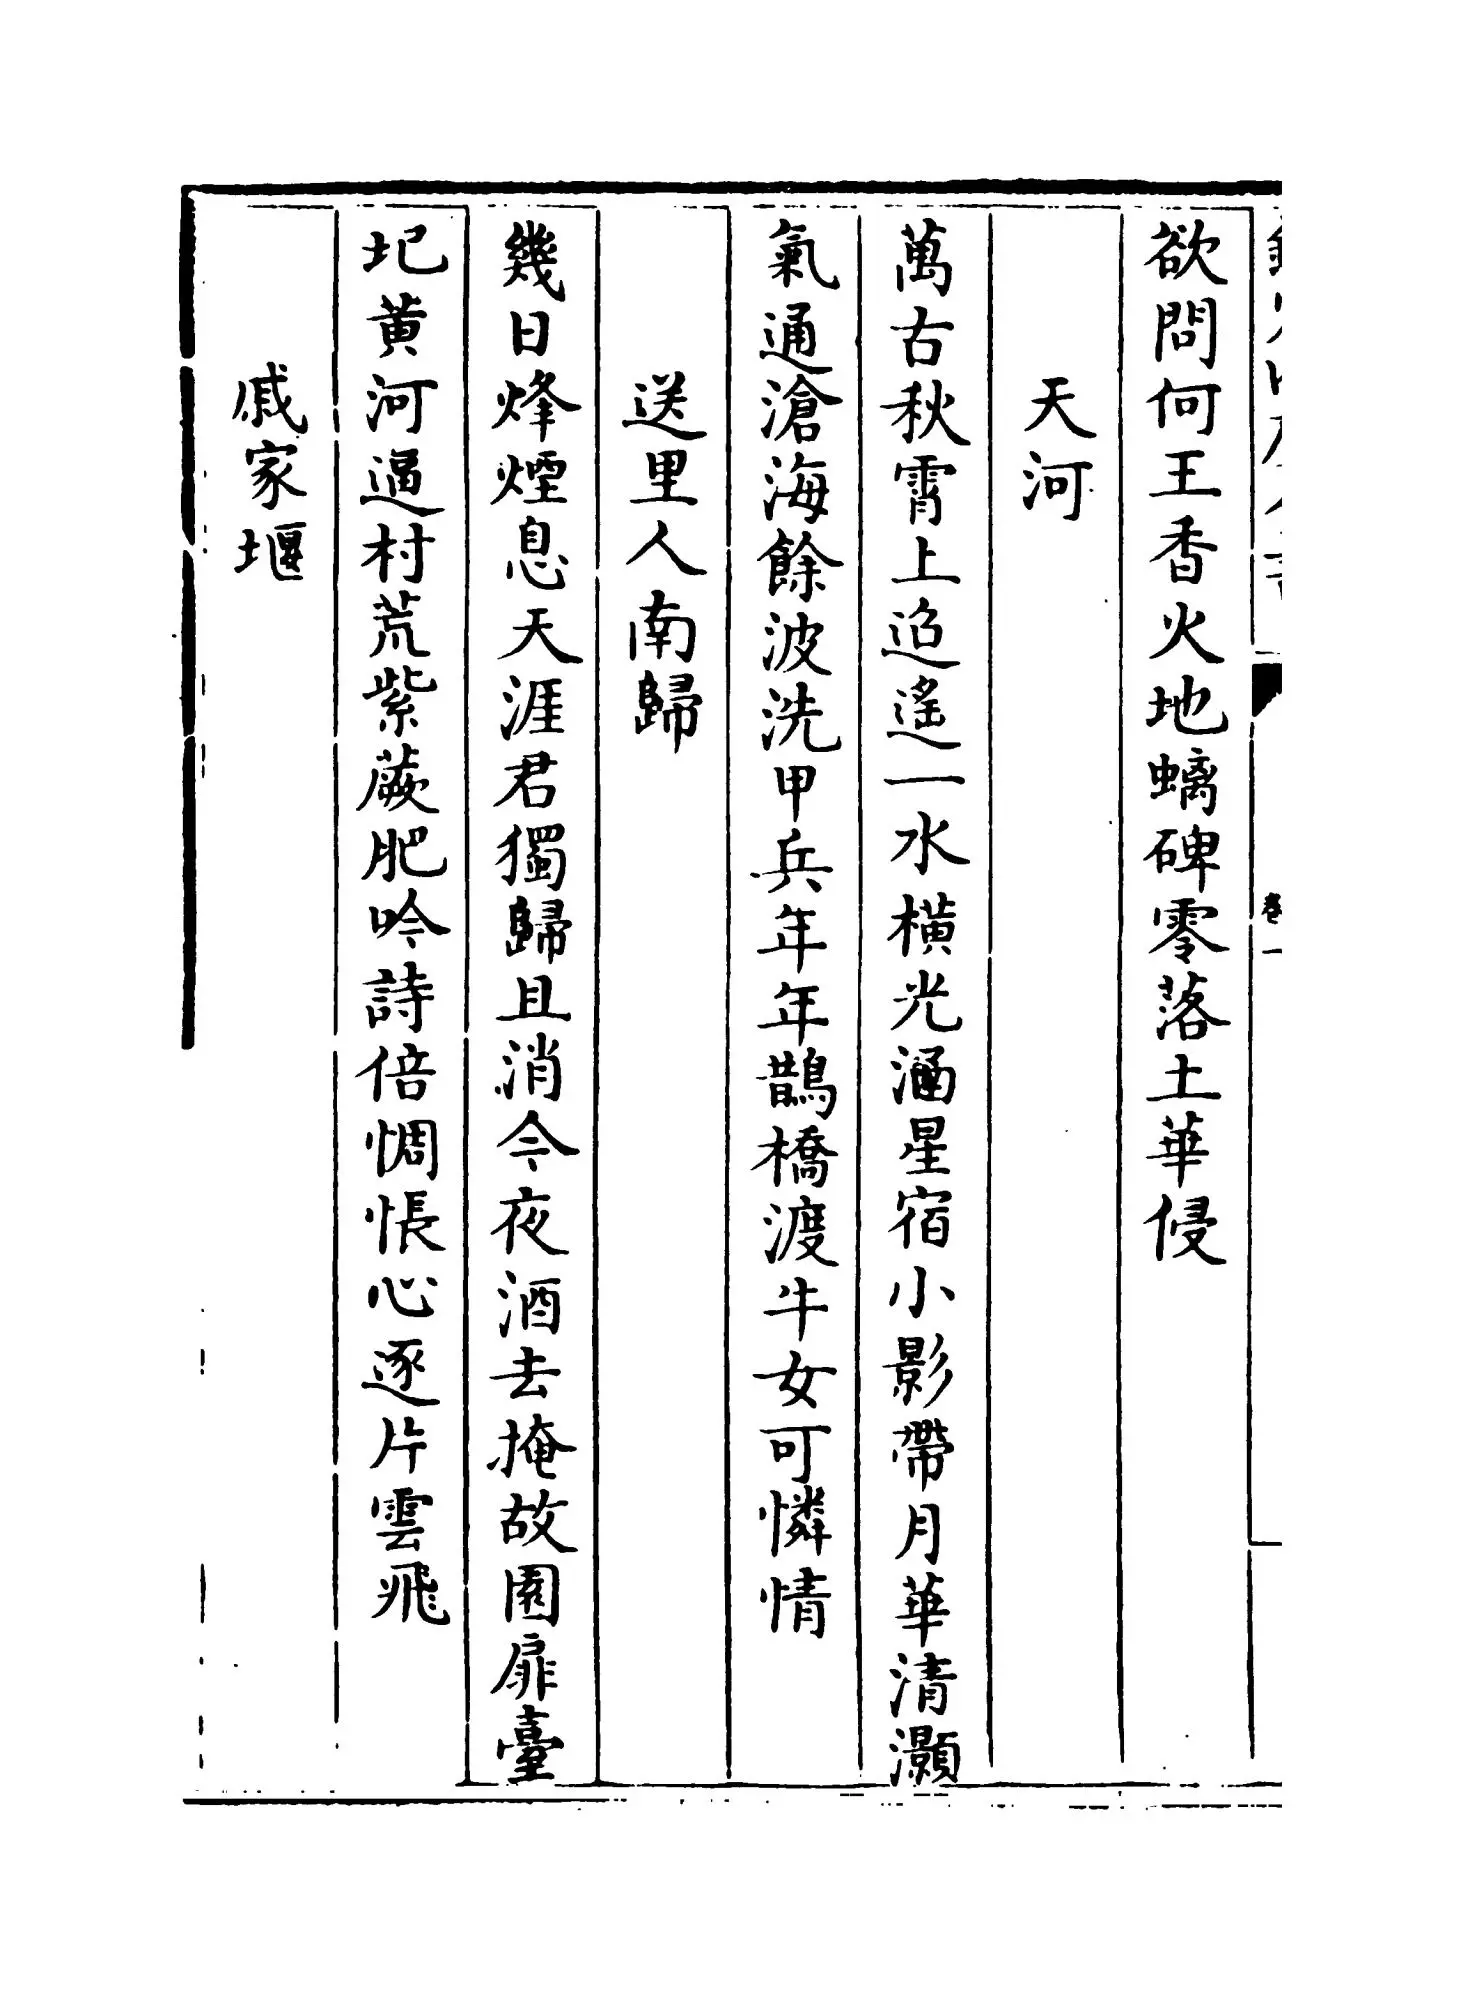 欲問何王香火地螭碑零落土華侵
天河
萬古秋霄上迢遙一水橫光涵星宿小影帶月華清灝
氣通滄海餘波洗甲兵年年鵲橋渡牛女可憐情
送里人南歸
幾日烽煙息天涯君獨歸且消今夜酒去掩故園扉臺
圯黄河逼村荒紫蕨肥吟詩倍惆悵心逐片雲飛
戚家堰
卷一